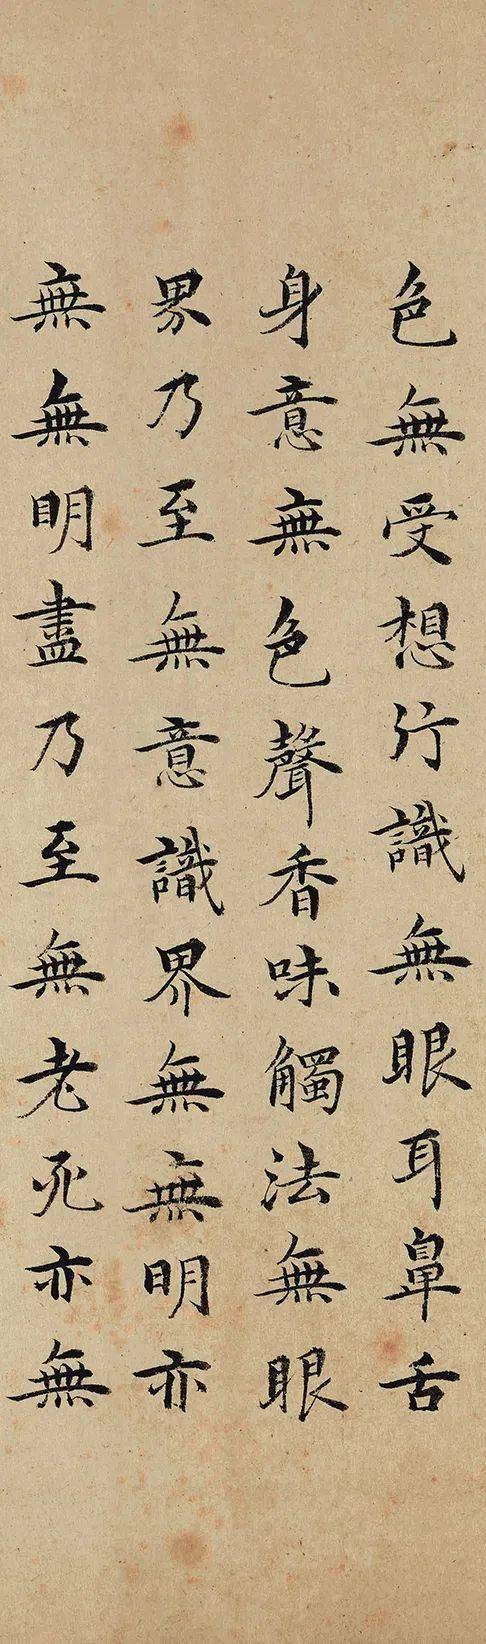 色無受想行識無眼耳鼻舌
身意無色聲香味觸法無眼
界乃至無意識界無無明亦
無無明盡乃至無老死亦無